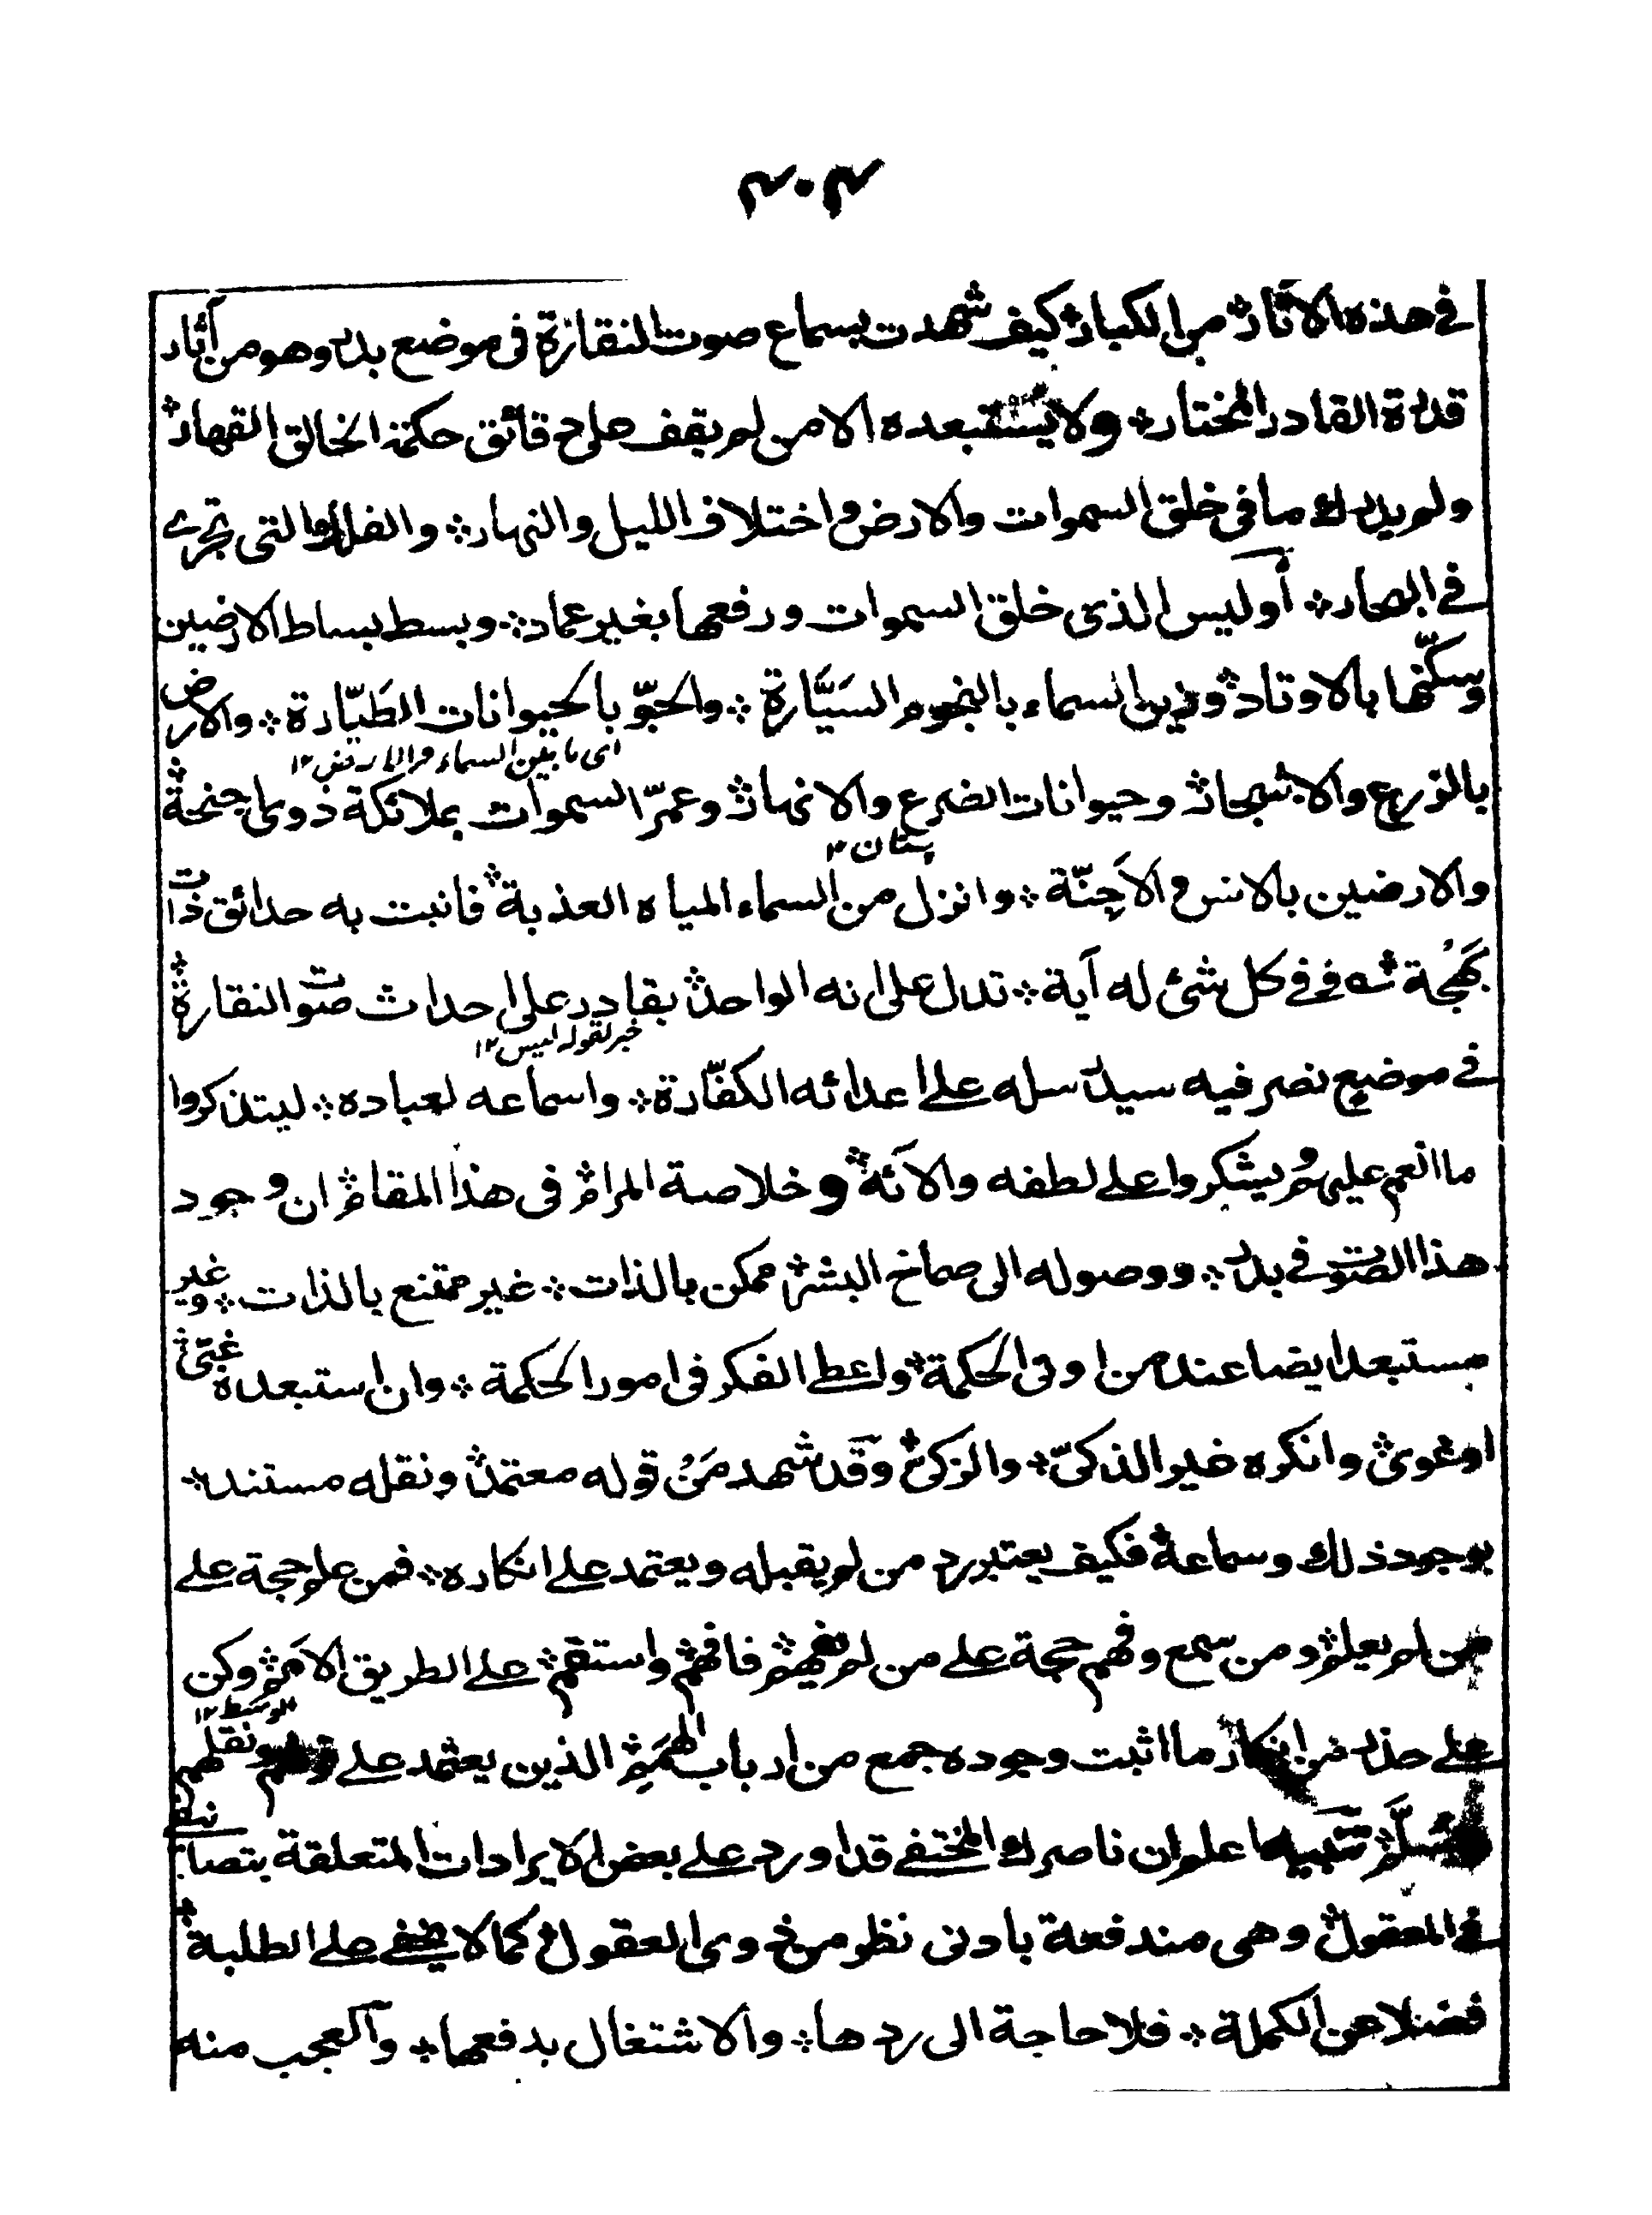 ۴۰۴
في هذه الآثار؞ من الكبار؞ كيف شهدت بسماع صوت النقارة في موضع بدر وهو من آثار
قدرة القادر المختار؞ ولا يستبعده الا من لم يقف على دقائق حكمة الخالق القهار؞
ولم يدرك ما في خلق السموات والارض واختلاف الليل والنهار؞ والفلك التي تجرے
في البحار؞ أوليس الذي خلق السموات ورفعها بغير عماد؞ وبسط بساط الارضين
وسكّنها بالاوتاد؞ وزين السماء بالنجوم السَيَّارة؞ والجوّ بالحيوانات الطَيّارة؞ والارض
اى ما بين السماء والارض ١٢
بالزرع والاشجار؞ وحيوانات الضرع والانهار؞ وعمرّ السموات بملائكة ذوى اجنحة؞
پستان ١٢
والارضين بالانس والاَجِنّة؞ وانزل من السماء المياه العذبة؞ فانبت به حدائق ذات
بَهْجة؞ ففي كل شئ له آية؞ تدل على انه الواحد؞ بقادر على احداث صوت النقارة؞
خبر لقوله اليس ١٢
في موضع نصر فيه سيد رسله على اعدائه الكفّارة؞ واسماعه لعباده؞ ليتذكروا
ما انعم عليهم ويشكروا على لطفه والآئه؞ وخلاصة المرام؞ في هذا المقام؞ ان وجود
هذا الصوت في بدر؞ ووصوله الى صماخ البشر؞ ممكن بالذات؞ غير ممتنع بالذات؞ وغير
مستبعد ايضا عند من اوتى الحكمة؞ واعطى الفكر في امور الحكمة؞ وان استبعده غبّى؞
او غوى؞ وانكره غير الذكىّ؞ والزكى؞ وقد شهد مَنْ قوله معتمد؞ ونقله مستند؞
بوجود ذلك وسماعه؞ فكيف يعتبر رد من لم يقبله ويعتمد على انكاره؞ فمن علم حجة على
من لم يعلم؞ ومن سمع وفهم حجة على من لم يفهم؞ فافهم؞ واستقم؞ على الطريق الاَمَم؞ وكن
الوسط ١٢
على حذر من انكار ما اثبت وجوده جمع من ارباب الهِمَم؞ الذين يعتمد على قولهم ونقلهم
وسَلَّم؞ تنبيه اعلم ان ناصرك المختفى قد اورد على بعض الايرادات المتعلقة بتصانيفى
في المعقول؞ وهى مندفعة بادنى نظر من ذوى العقول؞ كما لا يخفى على الطلبة؞
فضلا عن الكملة؞ فلا حاجة الى ردها؞ والاشتغال بدفعها؞ والعجب منه